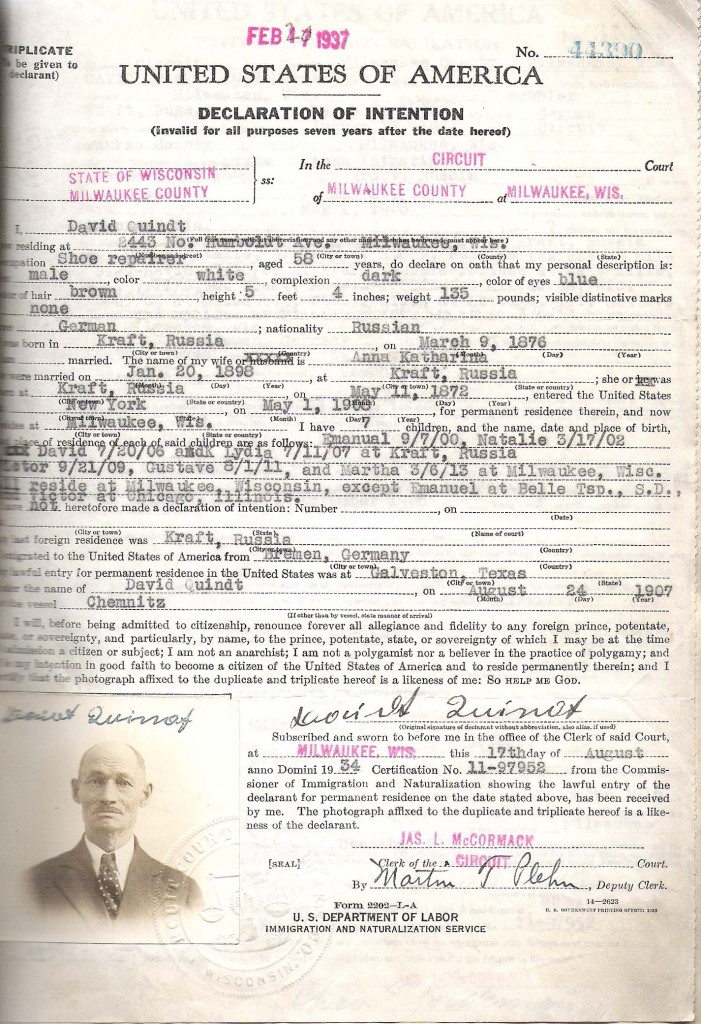 FEB 17 1937
TRIPLICATE
be given to
declarant)
No. 44390
UNITED STATES OF AMERICA
DECLARATION OF INTENTION
(Invalid for all purposes seven years after the date hereof)
STATE OF WISCONSIN
MILWAUKEE COUNTY
ss:
In the CIRCUIT Court
of MILWAUKEE COUNTY at MILWAUKEE, WIS.
I, David Quindt
residing at 2443 No. Humboldt Ave. Milwaukee, Wis.
Shoe repairer, aged 58 years, do declare on oath that my personal description is:
male, color white, complexion dark, color of eyes blue
of hair brown, height 5 feet 4 inches; weight 135 pounds; visible distinctive marks
none
German; nationality Russian
born in Kraft, Russia, on March 9, 1876
married. The name of my wife or husband is Anna Katharina
were married on Jan. 20, 1898, at Kraft, Russia; she or he was
at Kraft, Russia, on May 11, 1872, entered the United States
New York, on May 1, 1908, for permanent residence therein, and now
at Milwaukee, Wis. I have 7 children, and the name, date and place of birth,
of residence of each of said children are as follows: Emanual 9/7/00, Natalie 3/17/02
David 7/20/06 Lydia 7/11/07 at Kraft, Russia
9/21/09, Gustave 8/1/11, and Martha 3/6/13 at Milwaukee, Wisc.
reside at Milwaukee, Wisconsin, except Emanuel at Belle Tsp., S.D.,
Victor at Chicago, Illinois.
not heretofore made a declaration of intention: Number, on
(City or town) (State) (Name of court) (Date)
foreign residence was Kraft, Russia
to the United States of America from Bremen, Germany
lawful entry for permanent residence in the United States was at Galveston, Texas
the name of David Quindt, on August 24 1907
vessel Chemnitz
(If other than by vessel, state manner of arrival)
I will, before being admitted to citizenship, renounce forever all allegiance and fidelity to any foreign prince, potentate,
or sovereignty, and particularly, by name, to the prince, potentate, state, or sovereignty of which I may be at the time
a citizen or subject; I am not an anarchist; I am not a polygamist nor a believer in the practice of polygamy; and
intention in good faith to become a citizen of the United States of America and to reside permanently therein; and I
that the photograph affixed to the duplicate and triplicate hereof is a likeness of me: SO HELP ME GOD.
(Original signature of declarant without abbreviation, also alias, if used)
Subscribed and sworn to before me in the office of the Clerk of said Court,
at MILWAUKEE, WIS. this 17th day of August
anno Domini 1934 Certification No. 11-97952 from the Commis-
sioner of Immigration and Naturalization showing the lawful entry of the
declarant for permanent residence on the date stated above, has been received
by me. The photograph affixed to the duplicate and triplicate hereof is a like-
ness of the declarant.
JAS. L. McCORMACK
[SEAL]
Clerk of the CIRCUIT Court.
By Martin T Plehn, Deputy Clerk.
Form 2202-L-A
14-2623
U. S. DEPARTMENT OF LABOR
IMMIGRATION AND NATURALIZATION SERVICE